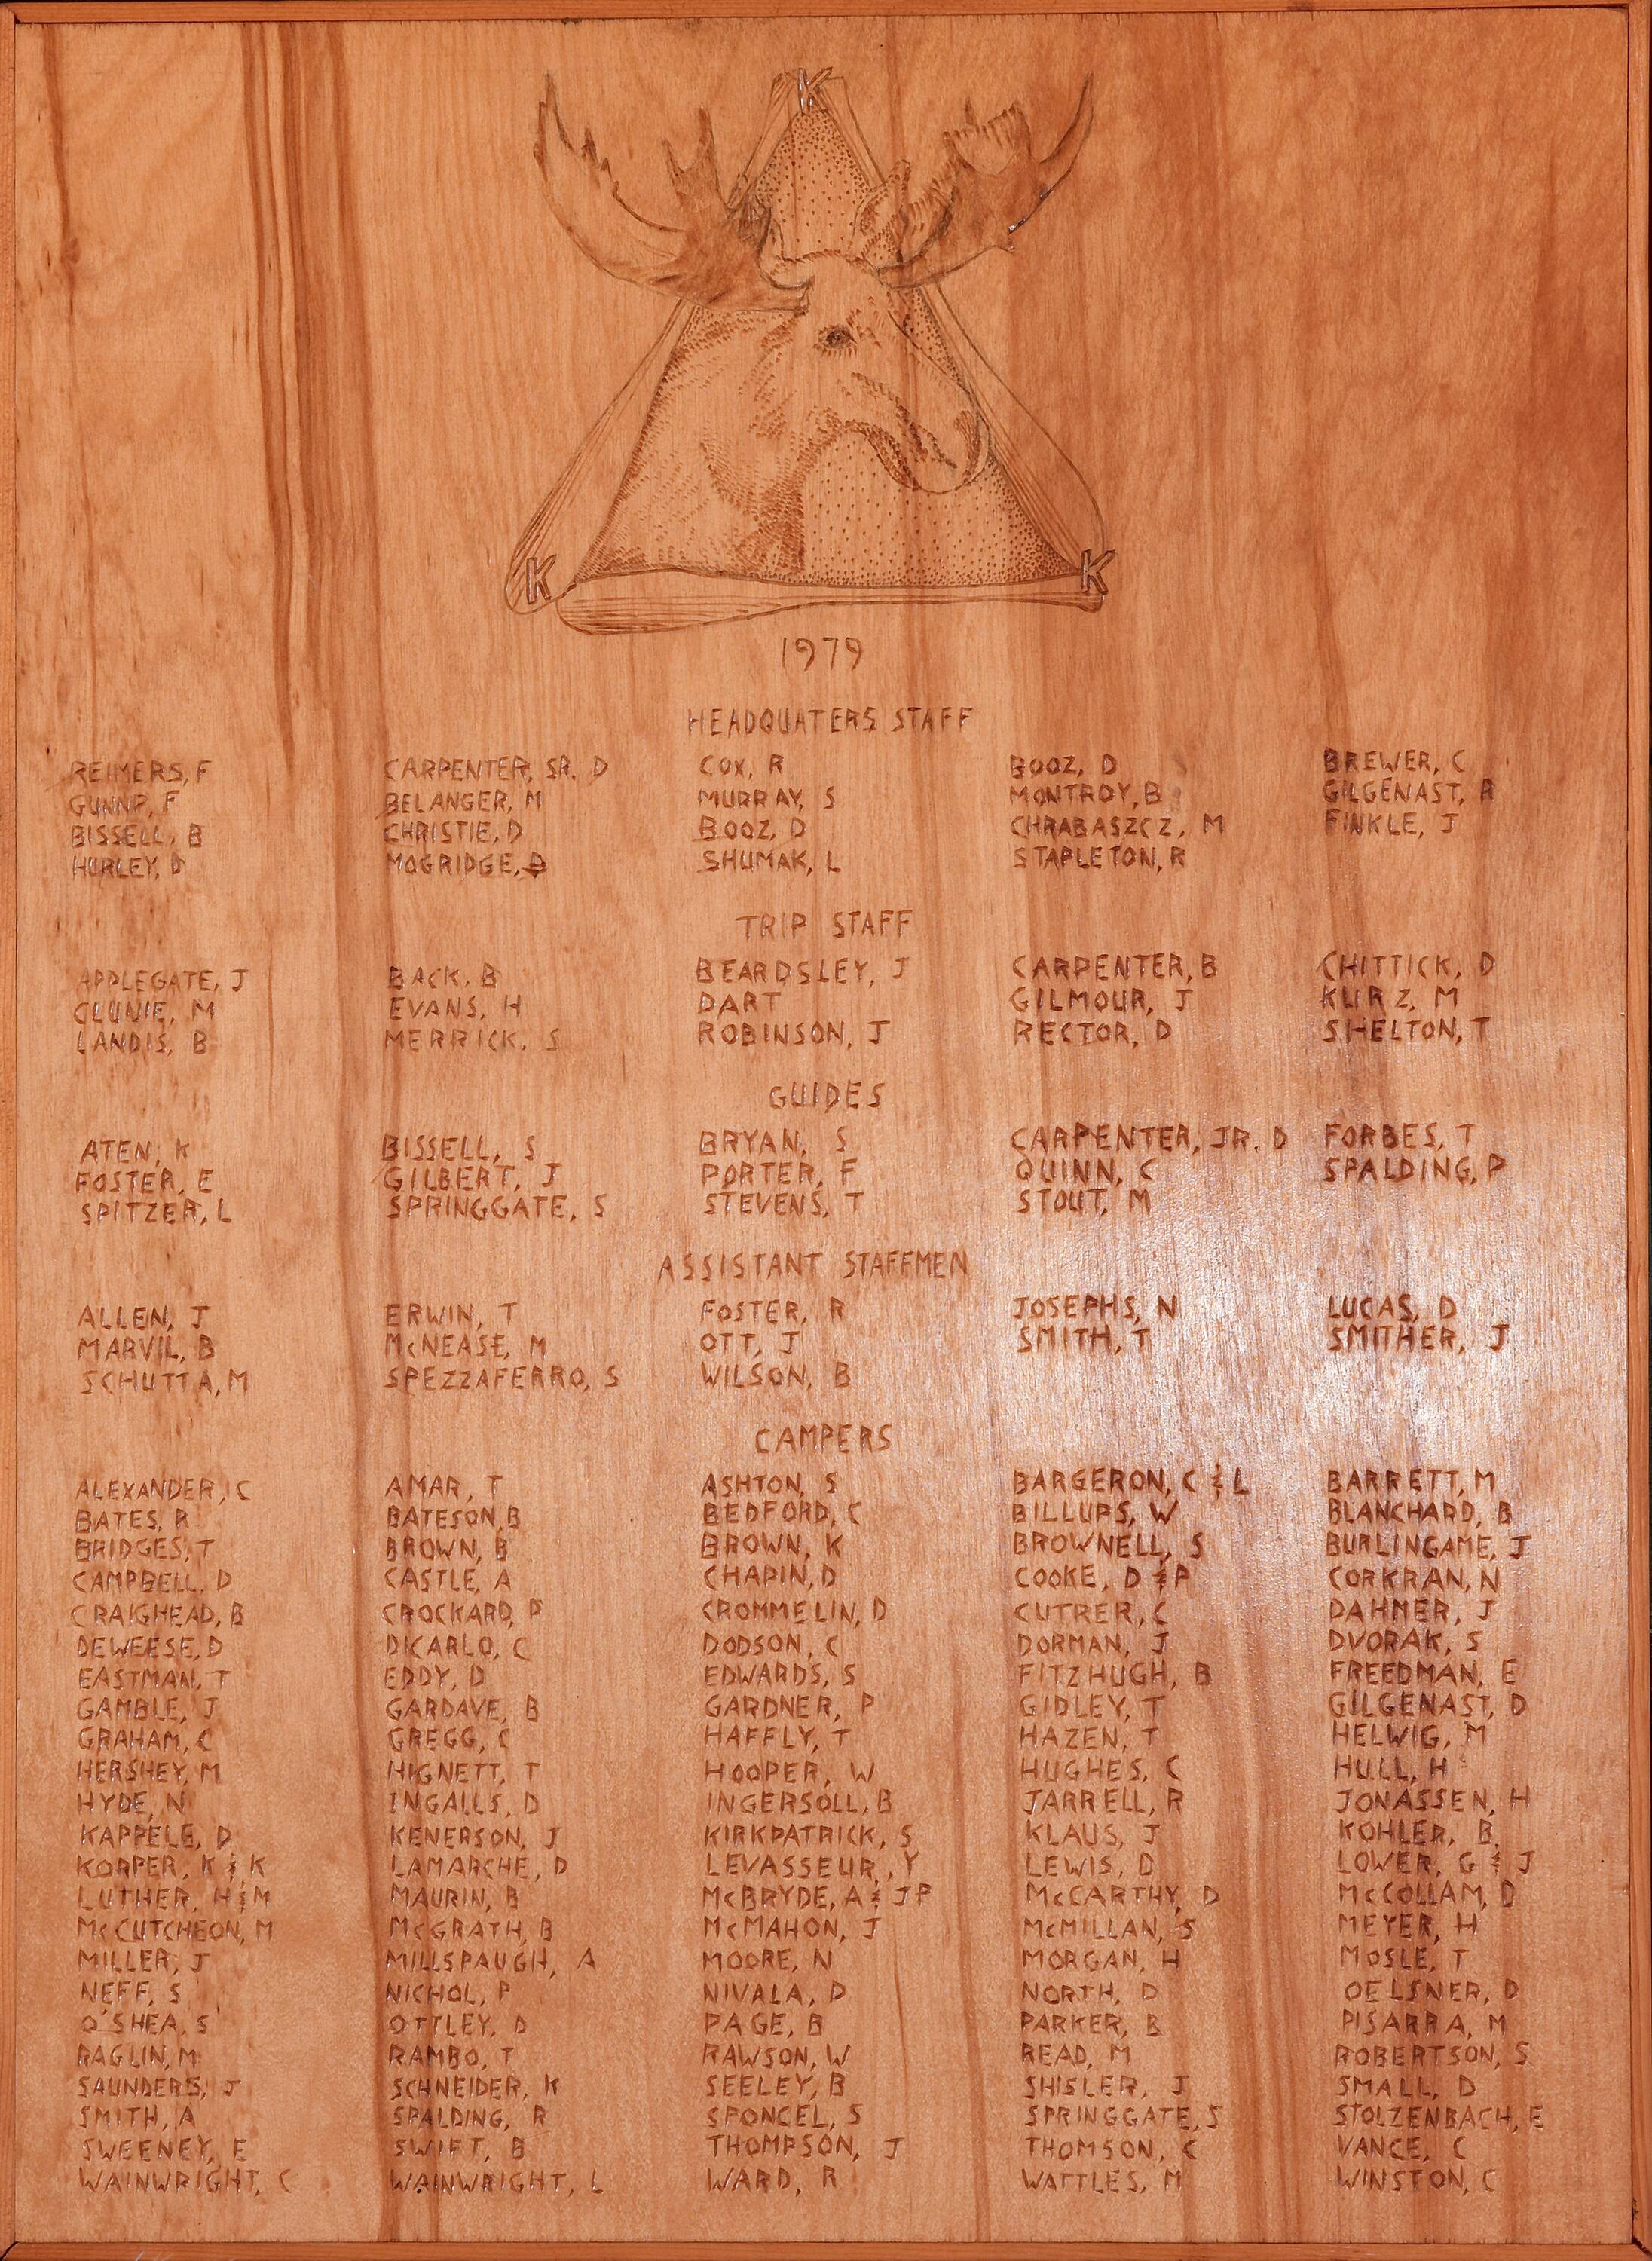 K
K K
1979
HEADQUATERS STAFF
REIMERS, F CARPENTER, SR. D COX, R BOOZ, D BREWER, C
GUNNP, F BELANGER, M MURRAY, S MONTROY, B GILGENAST, R
BISSELL, B CHRISTIE, D BOOZ, D CHRABASZCZ, M FINKLE, J
HURLEY, D MOGRIDGE, SHUMAK, L STAPLETON, R
TRIP STAFF
APPLEGATE, J BACK, B BEARDSLEY, J CARPENTER, B CHITTICK, D
CLUNIE, M EVANS, H DART GILMOUR, J KURZ, M
LANDIS, B MERRICK, S ROBINSON, J RECTOR, D SHELTON, T
GUIDES
ATEN, K BISSELL, S BRYAN, S CARPENTER, JR. D FORBES, T
FOSTER, E GILBERT, J PORTER, F QUINN, C SPALDING, P
SPITZER, L SPRINGGATE, S STEVENS, T STOUT, M
ASSISTANT STAFFMEN
ALLEN, J ERWIN, T FOSTER, R JOSEPHS, N LUCAS, D
MARVIL, B McNEASE, M OTT, J SMITH, T SMITHER, J
SCHUTTA, M SPEZZAFERRO, S WILSON, B
CAMPERS
ALEXANDER, C AMAR, T ASHTON, S BARGERON, C & L BARRETT, M
BATES, R BATESON, B BEDFORD, C BILLUPS, W BLANCHARD, B
BRIDGES, T BROWN, B BROWN, K BROWNELL, S BURLINGAME, J
CAMPBELL, D CASTLE, A CHAPIN, D COOKE, D & P CORKRAN, N
CRAIGHEAD, B CROCKARD, P CROMMELIN, D CUTRER, C DAHMER, J
DEWEESE, D DICARLO, C DODSON, C DORMAN, J DVORAK, S
EASTMAN, T EDDY, D EDWARDS, S FITZHUGH, B FREEDMAN, E
GAMBLE, J GARDAVE, B GARDNER, P GIDLEY, T GILGENAST, D
GRAHAM, C GREGG, C HAFFLY, T HAZEN, T HELWIG, M
HERSHEY, M HIGNETT, T HOOPER, W HUGHES, C HULL, H
HYDE, N INGALLS, D INGERSOLL, B JARRELL, R JONASSEN, H
KAPPELE, D KENERSON, J KIRKPATRICK, S KLAUS, J KOHLER, B
KORPER, K & K LAMARCHE, D LEVASSEUR, Y LEWIS, D LOWER, G & J
LUTHER, H & M MAURIN, B McBRYDE, A & JP McCARTHY, D McCOLLAM, D
McCUTCHEON, M McGRATH, B McMAHON, J McMILLAN, S MEYER, H
MILLER, J MILLSPAUGH, A MOORE, N MORGAN, H MOSLE, T
NEFF, S NICHOL, P NIVALA, D NORTH, D OELSNER, D
O'SHEA, S OTTLEY, D PAGE, B PARKER, B PISARRA, M
RAGLIN, M RAMBO, T RAWSON, W READ, M ROBERTSON, S
SAUNDERS, J SCHNEIDER, K SEELEY, B SHISLER, J SMALL, D
SMITH, A SPALDING, R SPONCEL, S SPRINGGATE, S STOLZENBACH, E
SWEENEY, E SWIFT, B THOMPSON, J THOMSON, C VANCE, C
WAINWRIGHT, C WAINWRIGHT, L WARD, R WATTLES, M WINSTON, C